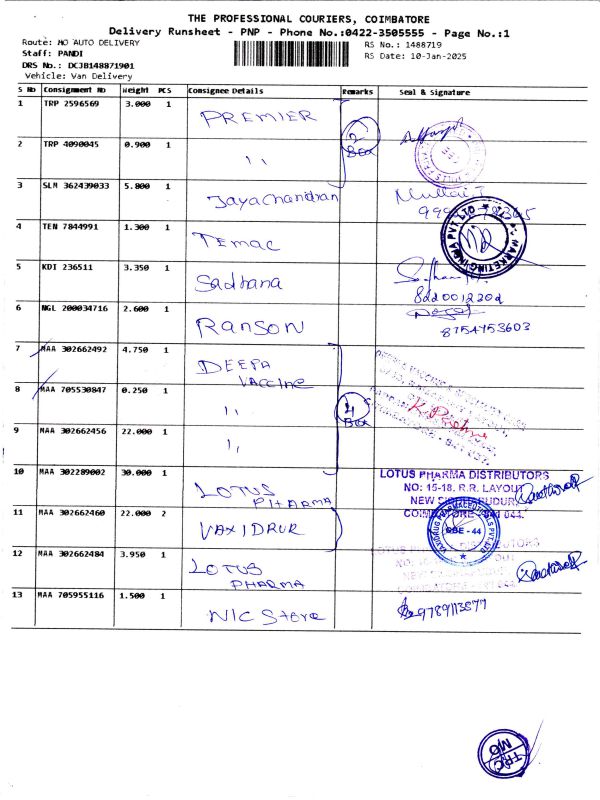 THE PROFESSIONAL COURIERS, COIMBATORE
Delivery Runsheet - PNP - Phone No.:0422-3505555 - Page No.:1
Route: MO AUTO DELIVERY
RS No.: 1488719
Staff: PANDI
RS Date: 10-Jan-2025
DRS No.: DCJB148871901
Vehicle: Van Delivery
S No Consignment No Weight PCS Consignee Details Remarks Seal & Signature
1 TRP 2596569 3.000 1 PREMIER
2 Box
2 TRP 4090045 0.900 1 ,,
3 SLM 362439033 5.800 1 Jayachandran
4 TEN 7844991 1.300 1 TEMAC
MARKETING INDIA PVT LTD
5 KDI 236511 3.350 1 Sadhana
8220012202
6 NGL 200034716 2.600 1 RANSON
8754753603
7 MAA 302662492 4.750 1 DEEPA VACCINE
8 MAA 705530847 0.250 1 ,,
4 Box
9 MAA 302662456 22.000 1 ,,
10 MAA 302289002 30.000 1 LOTUS PHARMA
LOTUS PHARMA DISTRIBUTORS
NO: 15-18, R.R. LAYOUT
NEW SIDDHAPUDUR
COIMBATORE - 641 044.
11 MAA 302662460 22.000 2 VAXIDRUR
CBE - 44
12 MAA 302662484 3.950 1 LOTUS PHARMA
13 MAA 705955116 1.500 1 NIC Store
9789113877
TRC
MO